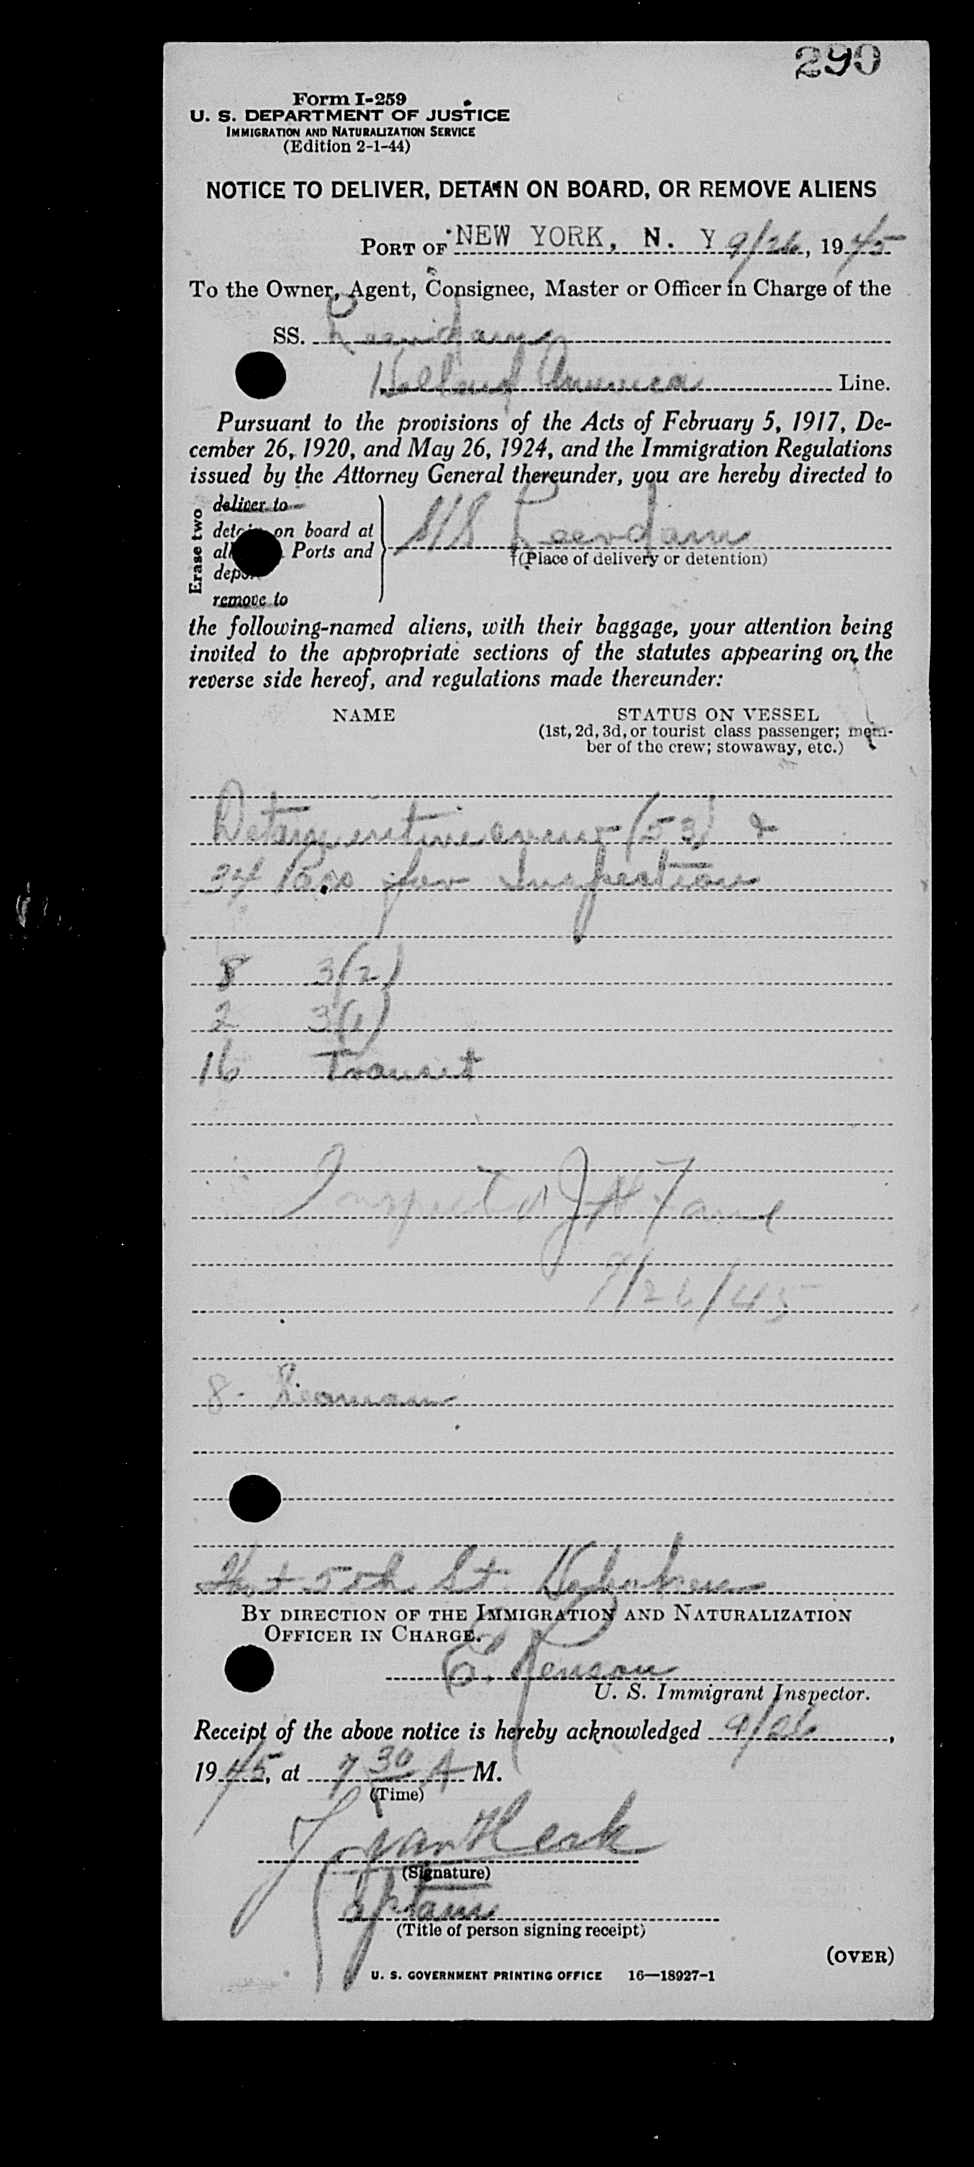 290
Form I-259
U. S. DEPARTMENT OF JUSTICE
IMMIGRATION AND NATURALIZATION SERVICE
(Edition 2-1-44)
NOTICE TO DELIVER, DETAIN ON BOARD, OR REMOVE ALIENS
PORT OF NEW YORK, N. Y 9/26, 1945
To the Owner, Agent, Consignee, Master or Officer in Charge of the
SS. Leerdam
Holland America Line.
Pursuant to the provisions of the Acts of February 5, 1917, De-
cember 26, 1920, and May 26, 1924, and the Immigration Regulations
issued by the Attorney General thereunder, you are hereby directed to
Erase two
deliver to
detain on board at
Ports and
S/S Leerdam
(Place of delivery or detention)
remove to
the following-named aliens, with their baggage, your attention being
invited to the appropriate sections of the statutes appearing on the
reverse side hereof, and regulations made thereunder:
NAME STATUS ON VESSEL
(1st, 2d, 3d, or tourist class passenger; mem-
ber of the crew; stowaway, etc.)
Detain entire crew (53) &
34 Pass for Inspection
8 3(2)
2 3(1)
16 Transit
Inspector J H
9/26/45
8 - Seaman
5th St. Hoboken
BY DIRECTION OF THE IMMIGRATION AND NATURALIZATION
OFFICER IN CHARGE.
U. S. Immigrant Inspector.
Receipt of the above notice is hereby acknowledged 9/26,
1945, at 7 30 A M.
(Time)
van Herk
(Signature)
Captain
(Title of person signing receipt)
(OVER)
U. S. GOVERNMENT PRINTING OFFICE 16—18927-1